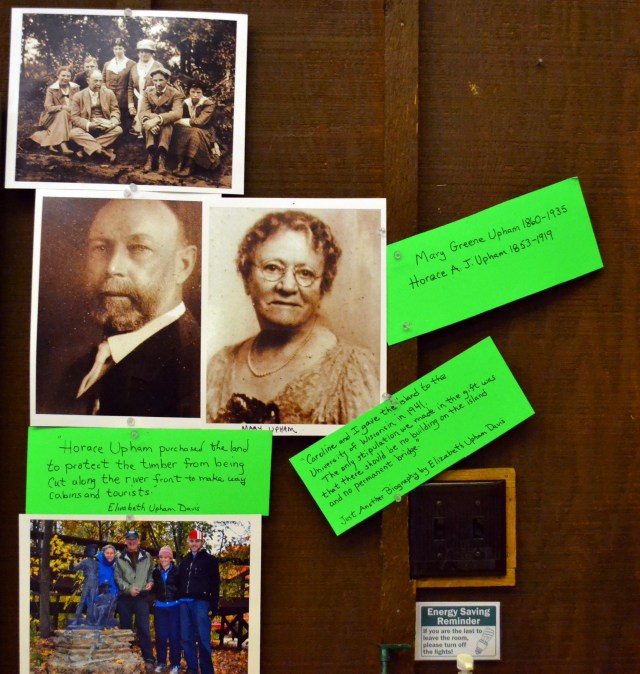 Mary Greene Upham 1860-1935
Horace A. J. Upham 1853-1919
MARY UPHAM
"Caroline and I gave the island to the
University of Wisconsin in 1941.
The only stipulation we made in the gift was
that there should be no building on the island
and no permanent bridge."
Just Another Biography by Elizabeth Upham Davis
"Horace Upham purchased the land
to protect the timber from being
cut along the river front to make way
cabins and tourists.
Elizabeth Upham Davis
Energy Saving
Reminder
If you are the last to
leave the room,
please turn off
the lights!